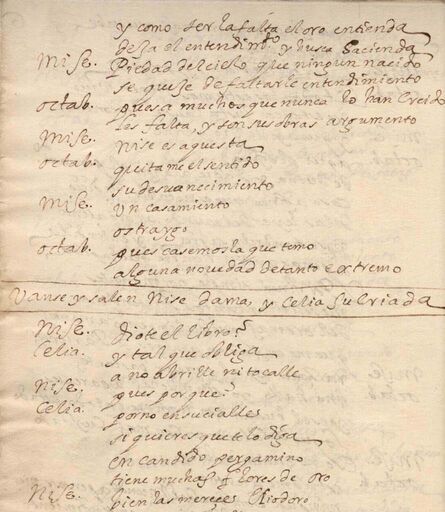 y como ser la falta el oro entienda
deja el entendimto y busca hacienda
Mise. Piedad del cielo que ningun nacido
se queje de faltarle entendimiento
octab. pues a muchos que nunca lo han creido
les falta, y son sus obras argumento
Mise. nise es aquesta
octab. quitame el sentido
su desvanecimiento
Mise. Un casamiento
os traygo
octab. pues casemosla que temo
alguna novedad de tanto extremo
Vanse y salen Nise dama, y Celia su criada
Nise. diote el libro?
Celia. y tal que obliga
a no abrille ni tocalle
Nise. pues por que?
Celia. por no ensucialle
si quieres que te lo diga
en candido pergamino
tiene muchas flores de oro
Nise. bien las mereçe Eliodoro